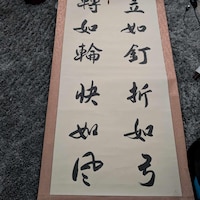 立如釘折如弓
轉如輪快如風